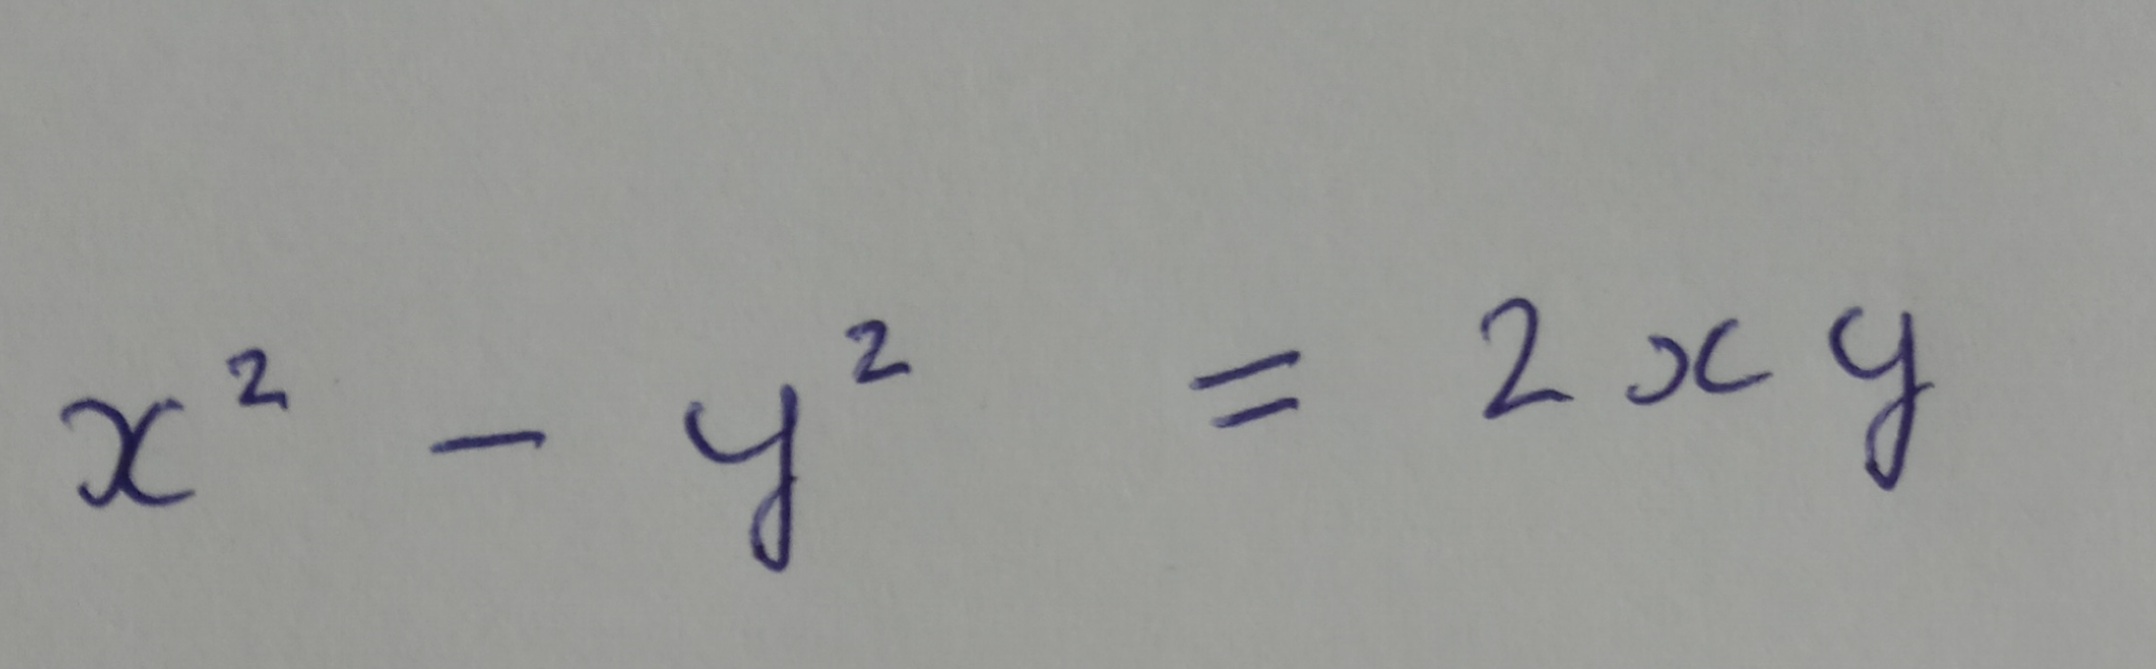 x² - y² = 2xy